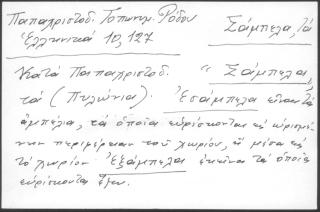 Παπαχριστοδ. Τοπωνυμ. Ρόδου Σάμπελα, τά
Ἑλληνικά 10, 127
Κατά Παπαχριστοδ. "Σάμπελα,
τά (Πυλώνια). Ἐσάμπελα εἶναι τά
ἀμπέλια, τά ὁποῖα εὑρίσκονται εἰς ὡρισμέ-
νην περιφέρειαν τοῦ χωρίου, ἤ μέσα εἰς
τό χωρίον Ἐξάμπελα ἐκεῖνα τά ὁποῖα
εὑρίσκονται ἔξω.